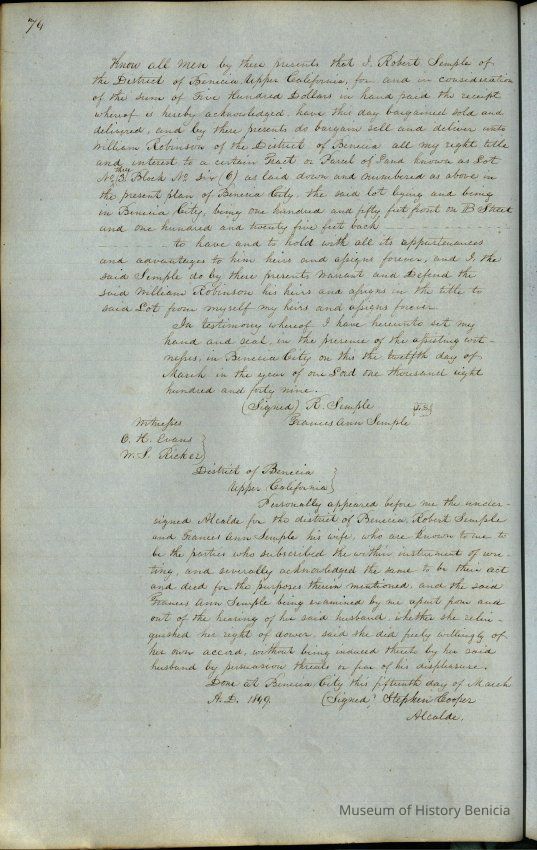 74
Know all Men by these presents that I. Robert Semple of
the District of Benicia, Upper California, for and in consideration
of the sum of Five Hundred Dollars in hand paid the receipt
whereof is hereby acknowledged, have this day bargained sold and
delivered, and by these presents do bargain sell and deliver unto
William Robinson of the District of Benicia all my right title
and interest to a certain Tract or Parcel of Land known as Lot
three
No 3. Block No Six (6) as laid down and numbered as above in
the present plan of Benicia City, the said lot lying and being
in Benicia City, being one hundred and fifty feet front on B Street
and one hundred and twenty five feet back
to have and to hold with all its appurtenances
and advantages to him heirs and assigns forever, and I, the
said Semple do by these presents Warrant and Defend the
said William Robinson his heirs and assigns in the title to
said Lot from myself my heirs and assigns forever.
In testimony whereof I have hereunto set my
hand and seal, in the presence of the assisting wit-
nesses, in Benicia City on this the twelfth day of
March in the year of our Lord one thousand eight
hundred and forty nine.
(Signed) R. Semple
Witnesses Frances Ann Semple
C. H. Evans
W. S. Ricker
District of Benicia
Upper California
Personally appeared before me the under-
signed Alcalde for the district of Benicia, Robert Semple
and Frances Ann Semple his wife, who are known to me to
be the parties who subscribed the within instrument of wri-
ting, and severally acknowledged the same to be their act
and deed for the purposes therein mentioned, and the said
Frances Ann Semple being examined by me apart from and
out of the hearing of her said husband, whether she relin-
quished her right of dower, said she did freely willingly of
her own accord, without being induced thereto by her said
husband by persuasion threats or fear of his displeasure.
Done at Benicia City this fifteenth day of March
A. D. 1849. (Signed) Stephen Cooper
Alcalde.
Museum of History Benicia